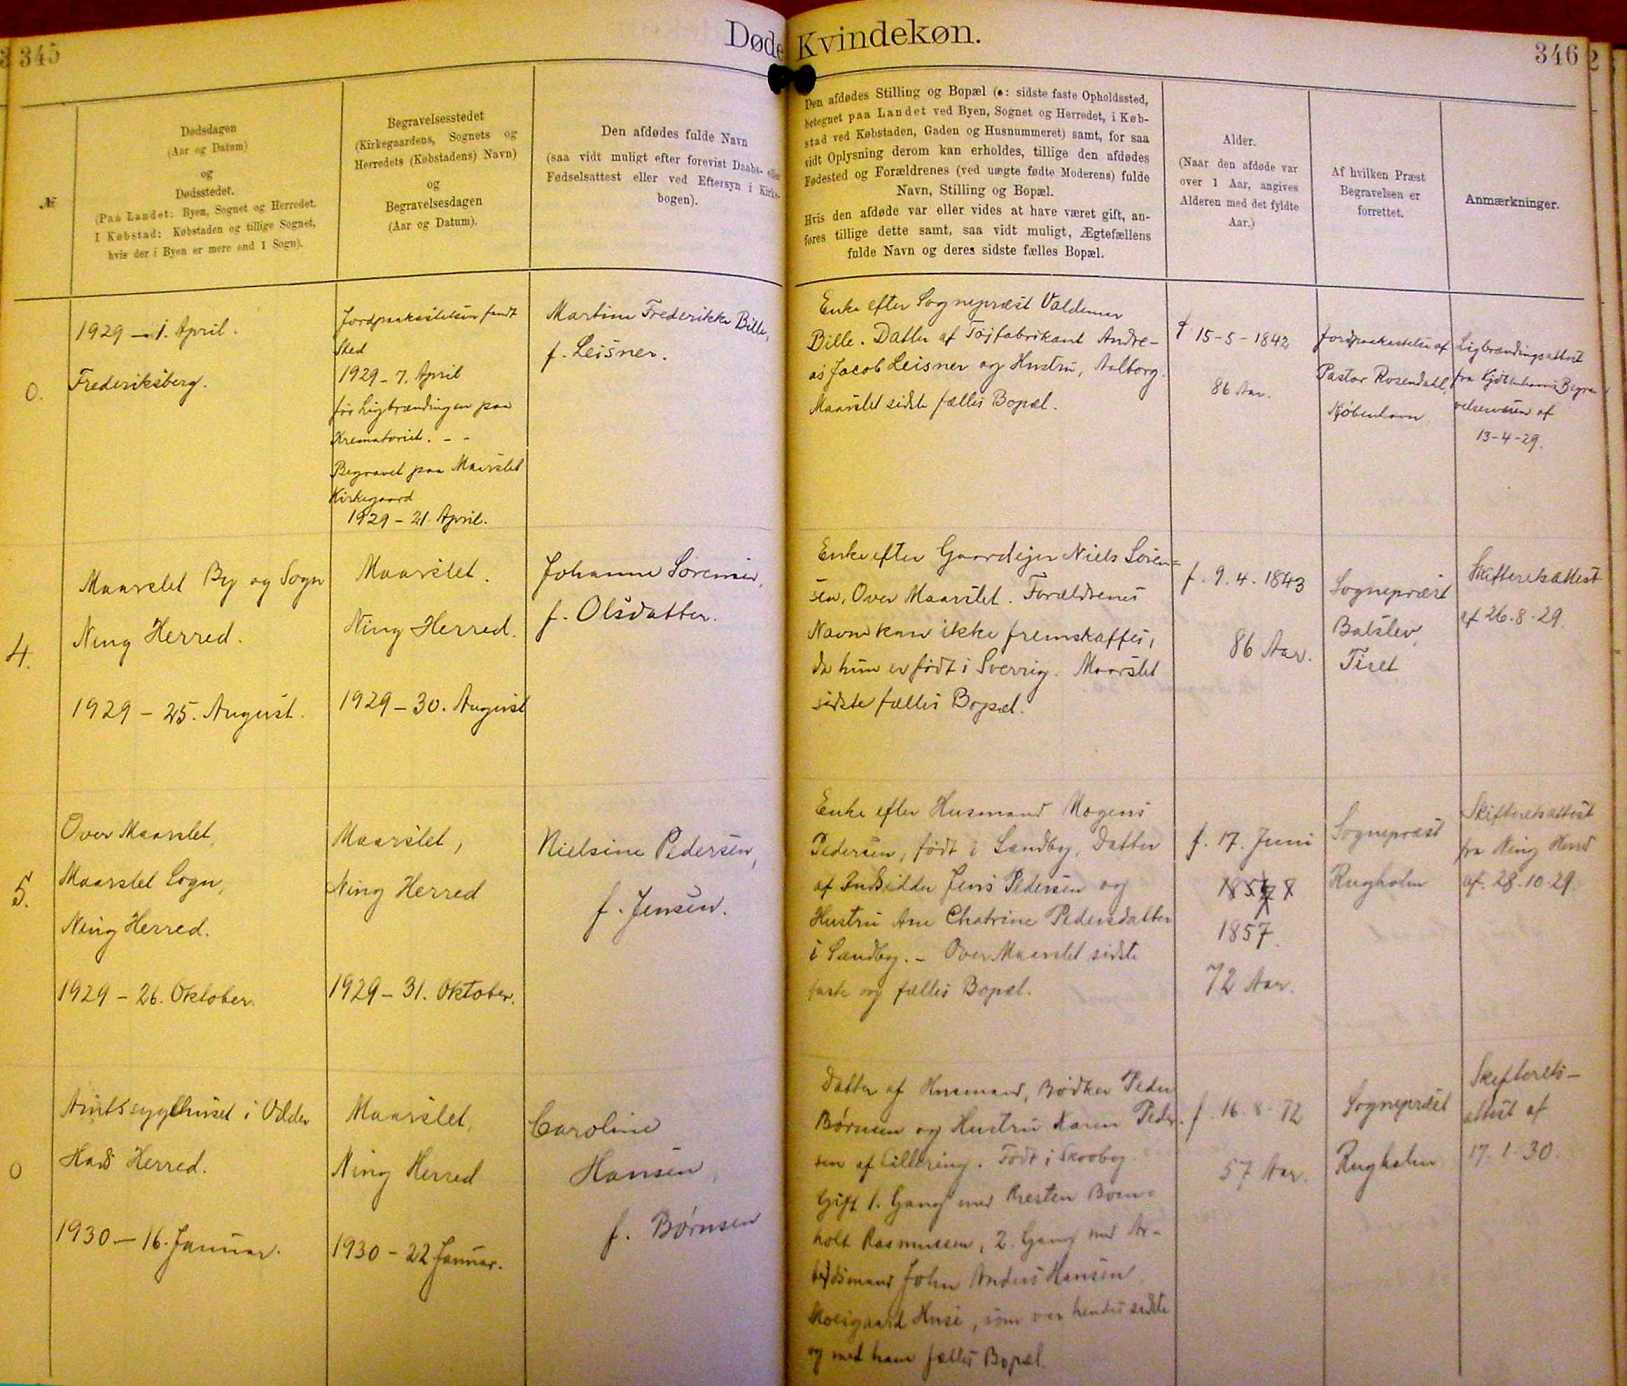 345
Døde
Kvindekøn.
346
№
Dødsdagen
(Aar og Datum)
og
Dødsstedet.
(Paa Landet: Byen, Sognet og Herredet.
I Købstad: Købstaden og tillige Sognet,
hvis der i Byen er mere end 1 Sogn).
Begravelsesstedet
(Kirkegaardens, Sognets og
Herredets (Købstadens) Navn)
og
Begravelsesdagen
(Aar og Datum).
Den afdødes fulde Navn
(saa vidt muligt efter forevist Daabs- eller
Fødselsattest eller ved Eftersyn i Kirke-
bogen).
Den afdødes Stilling og Bopæl (ɔ: sidste faste Opholdssted,
betegnet paa Landet ved Byen, Sognet og Herredet, i Køb-
stad ved Købstaden, Gaden og Husnummeret) samt, for saa
vidt Oplysning derom kan erholdes, tillige den afdødes
Fødested og Forældrenes (ved uægte fødte Moderens) fulde
Navn, Stilling og Bopæl.
Hvis den afdøde var eller vides at have været gift, an-
føres tillige dette samt, saa vidt muligt, Ægtefællens
fulde Navn og deres sidste fælles Bopæl.
Alder.
(Naar den afdøde var
over 1 Aar, angives
Alderen med det fyldte
Aar.)
Af hvilken Præst
Begravelsen er
forrettet.
Anmærkninger.
0.
1929 — 1. April.
Frederiksberg.
Jordpaakastelsen fandt
Sted
1929 - 7. April
før Ligbrændingen paa
Krematoriet. - -
Begravet paa Maarslet
Kirkegaard
1929 - 21 April.
Martine Frederikke Bille,
f. Leisner.
Enke efter Sognepræst Valdemar
Bille. Datter af Tøjfabrikant Andre-
as Jacob Leisner og Hustru, Aalborg.
Maarslet sidste fælles Bopæl.
f 15-5-1842
86 Aar.
Jordpaakastelse af
Pastor Rosendahl,
København
Ligbrændingsattest
fra Kjøbenhavns Begra-
velsesvæsen af
13-4-29.
4.
Maarslet By og Sogn
Ning Herred.
1929 - 25. August.
Maarslet.
Ning Herred.
1929 - 30. August
Johanne Sørensen,
f. Olsdatter.
Enke efter Gaardejer Niels Søren=
sen, Over Maarslet. Forældrenes
Navne kan ikke fremskaffes,
da hun er født i Sverrig. Maarslet
sidste fælles Bopæl.
f. 9. 4. 1843
86 Aar.
Sognepræst
Balslev,
Tiset
Skifteretsattest
af 26-8-29.
5.
Over Maarslet,
Maarslet Sogn,
Ning Herred.
1929 - 26. Oktober.
Maarslet,
Ning Herred
1929 - 31. Oktober.
Nielsine Pedersen,
f. Jensen.
Enke efter Husmand Mogens
Pedersen, født i Sandby, Datter
af Indsidder Jens Pedersen og
Hustru Ane Chatrine Pedersdatter
i Sandby. - Over Maarslet sidste
faste og fælles Bopæl.
f. 17. Juni
1857.
72 Aar.
Sognepræst
Rugholm
Skifteretsattest
fra Ning Herred
af. 28-10-29.
0
Amtssygehuset i Odder
Hads Herred.
1930 — 16. Januar.
Maarslet,
Ning Herred
1930 - 22 Januar.
Caroline
Hansen,
f. Børnsen
Datter af Husmand, Bødker Peder
Børnsen og Hustru Karen Peder-
sen af Eillering. Født i Skovby
Gift 1. Gang med Kresten Boen=
holt Rasmussen, 2. Gang med Ar-
bejdsmand John Anders Hansen
Huse, som var hendes sidste
og med ham fælles Bopæl.
f. 16-8-72
57 Aar.
Sognepræst
Rugholm
Skifterets-
attest af
17-1-30.